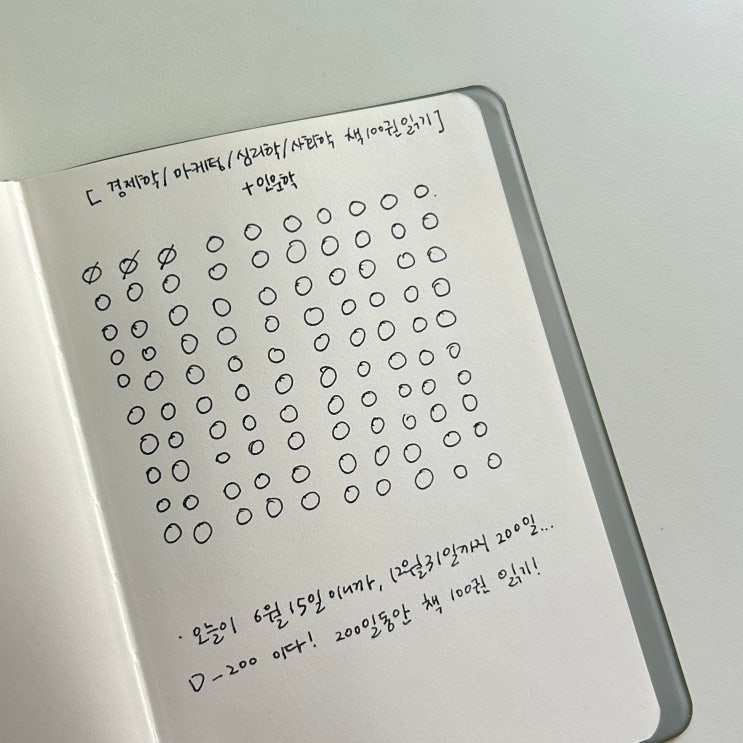 [ 경제학/마케팅/심리학/사회학 책 100권 읽기]
+인문학
· 오늘이 6월 15일 이니까, 12월31일까지 200일...
D-200 이다! 200일동안 책 100권 읽기!